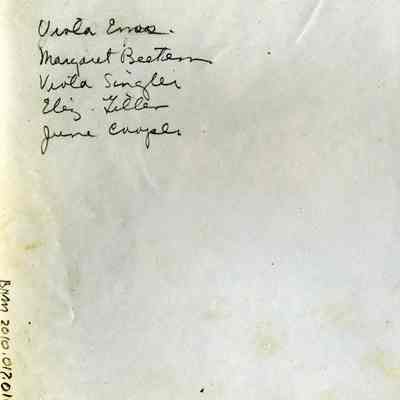 Viola Enos.
Margaret Beetem
Viola Singler
Eliz. Filler
June Cooper
BMM 2010.017.01